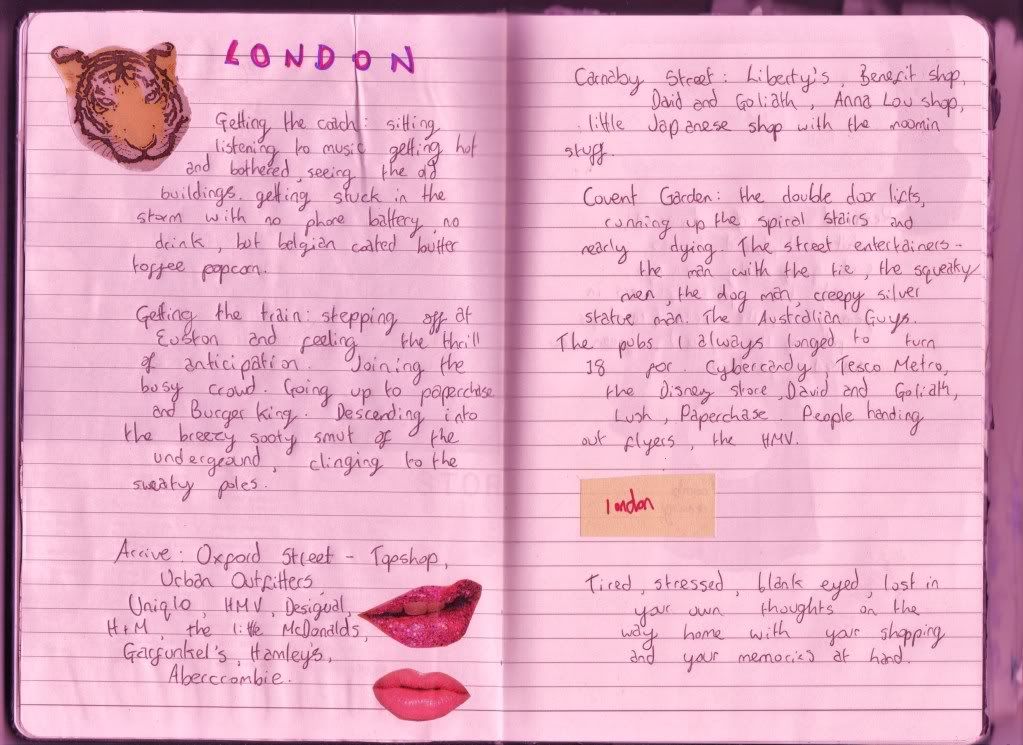 LONDON
Getting the coach: sitting
listening to music getting hot
and bothered, seeing the old
buildings. getting stuck in the
storm with no phone battery, no
drink, but belgian coated butter
toffee popcorn.
Getting the train: stepping off at
Euston and feeling the thrill
of anticipation. Joining the
busy crowd. Going up to paperchase
and Burger King. Descending into
the breezy sooty smut of the
underground, clinging to the
sweaty poles.
Arrive: Oxford Street - Topshop,
Urban Outfitters,
Uniqlo, HMV, Desigual,
H+M, the little McDonalds,
Garfunkel's, Hamley's,
Abercrombie.
Carnaby Street: Liberty's, Benefit shop,
David and Goliath, Anna Lou shop,
little Japanese shop with the moomin
stuff.
Covent Garden: the double door lifts,
running up the spiral stairs and
nearly dying. The street entertainers -
the man with the tie, the squeaky
men, the dog man, creepy silver
statue man. The Australian Guys.
The pubs I always longed to turn
18 for. Cybercandy, Tesco Metro,
the Disney store, David and Goliath,
Lush, Paperchase. People handing
out flyers, the HMV.
london
Tired, stressed, blank eyed, lost in
your own thoughts on the
way home with your shopping
and your memories at hand.